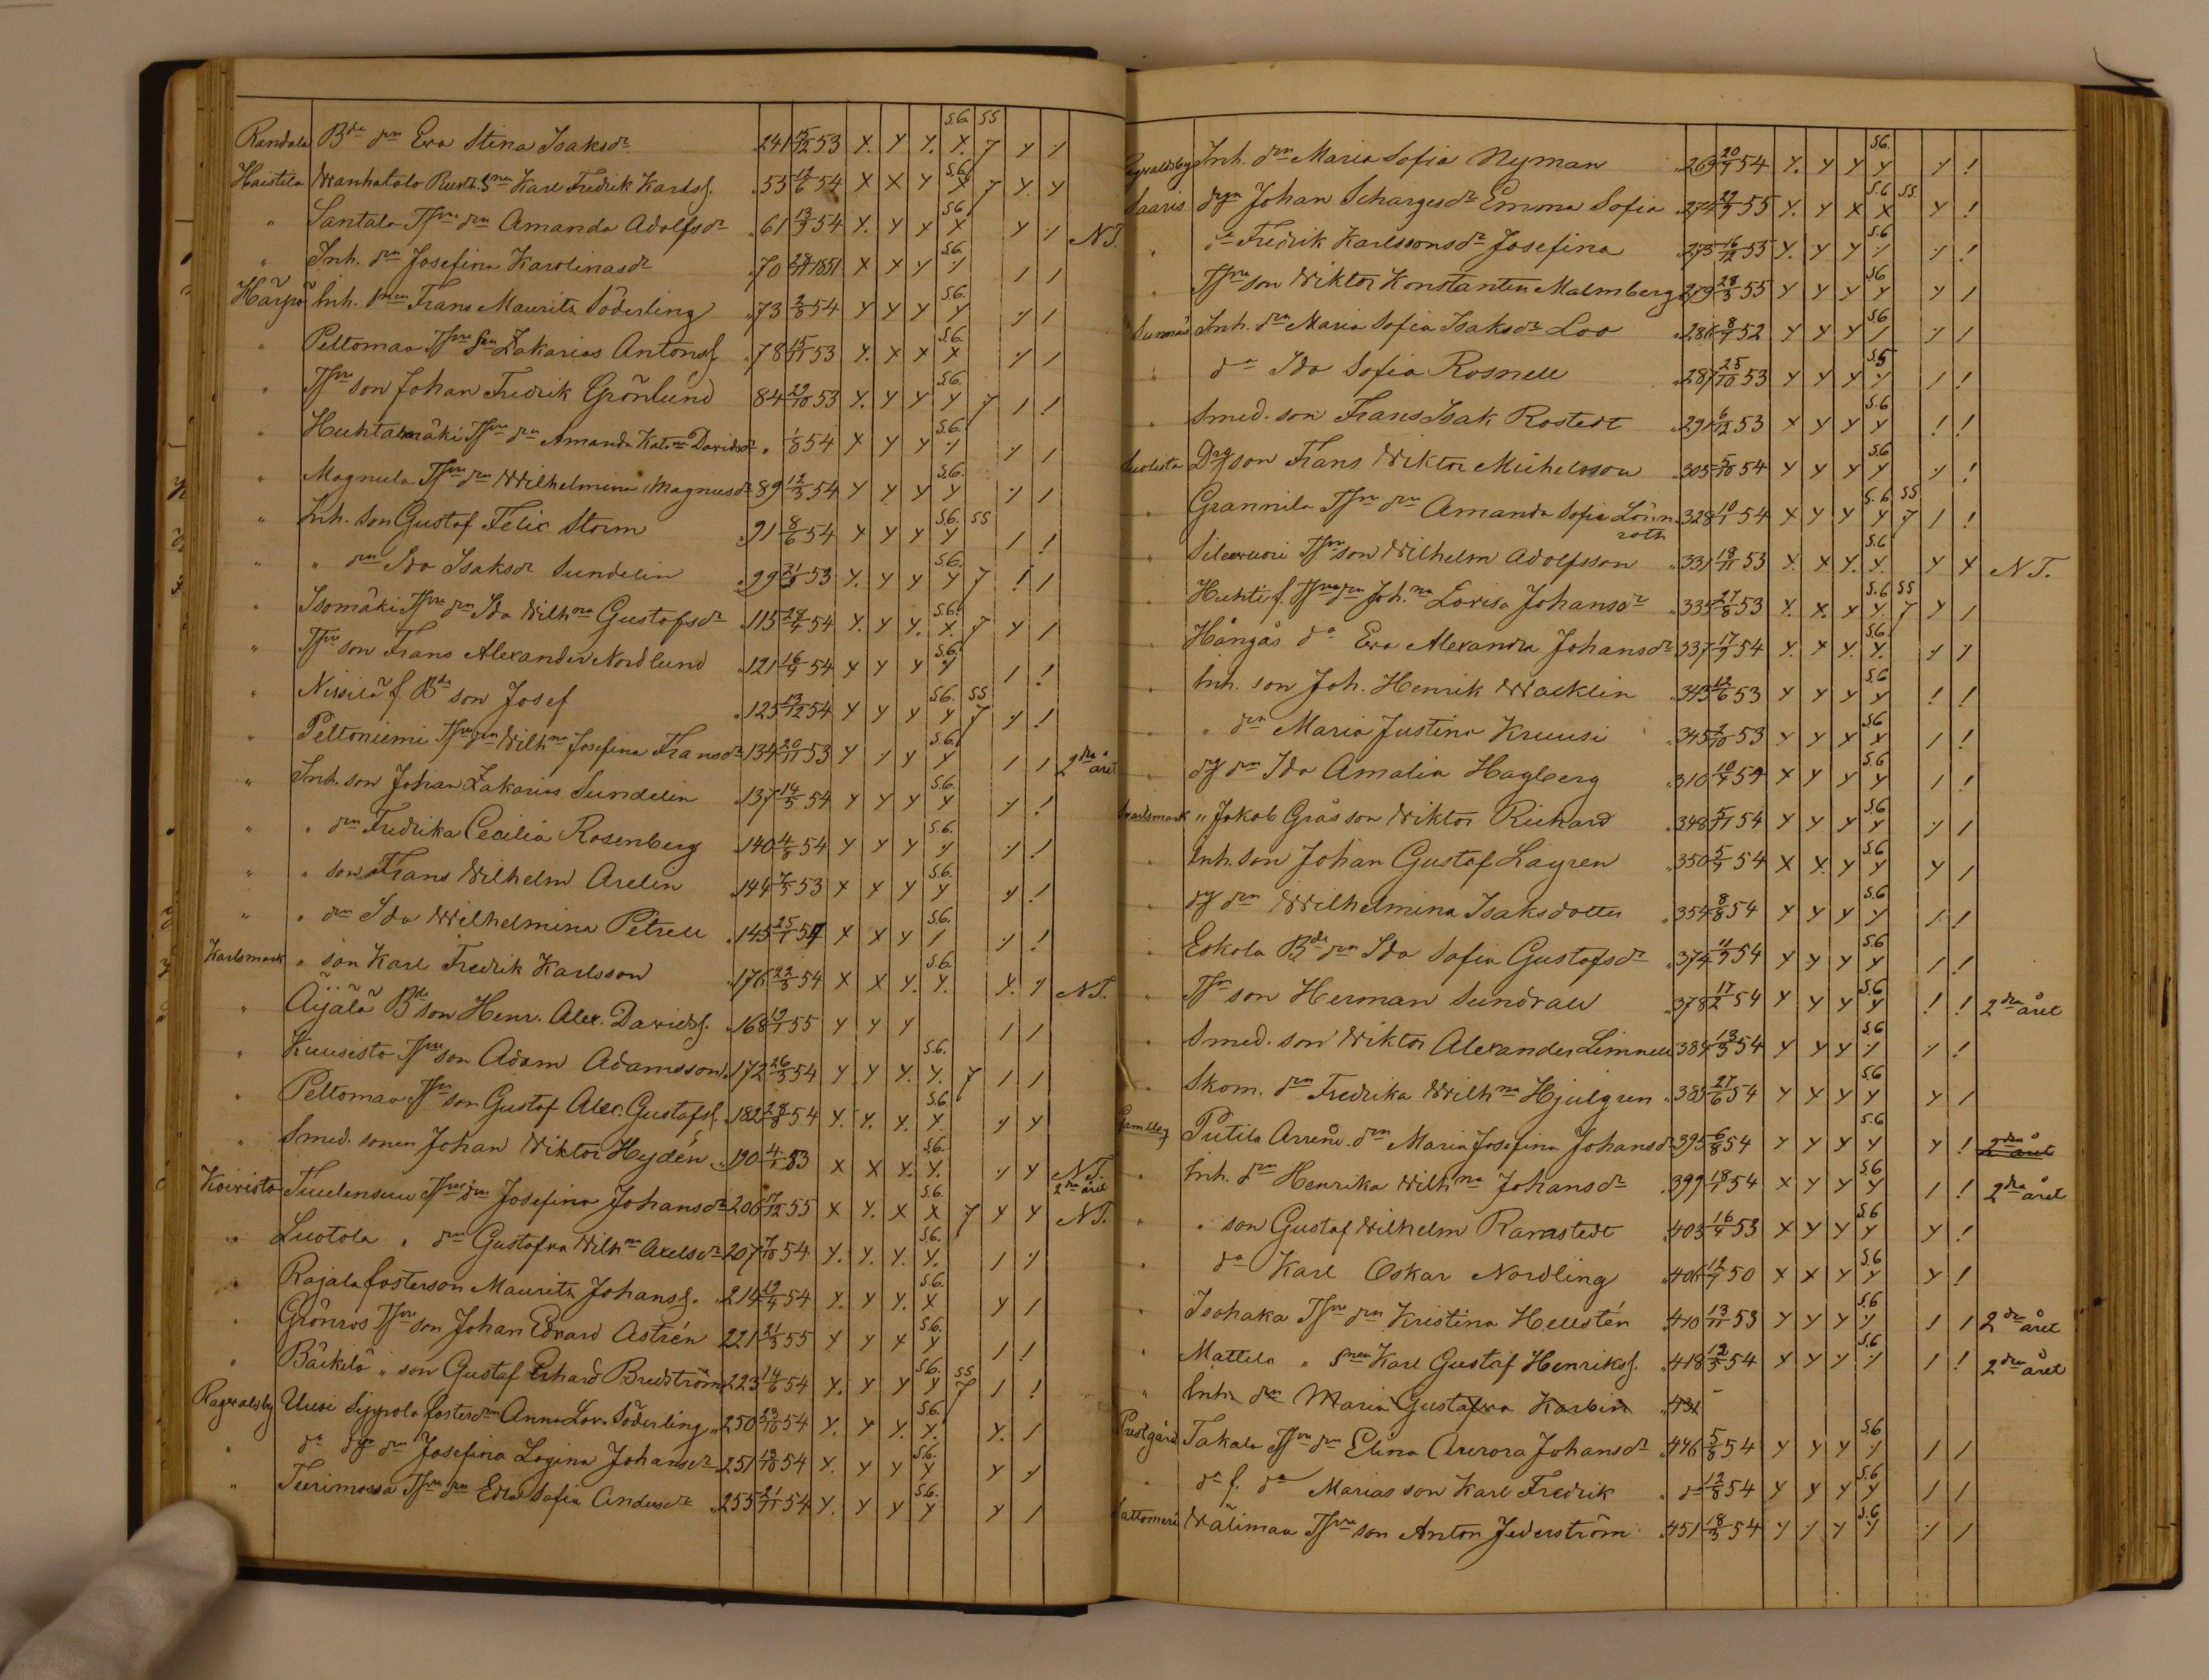 S.6. SS
Randala Bde drn Eva Stina Isaksdr 241 15/12 53 X. Y Y. X. 7 Y ⁒
Haistila Wanhatalo Rusth. Snen Karl Fredrik Karlsf. 55 12/6 54 X X Y S.6. X 7 Y. Y
" Santala Tpre drn Amanda Adolfsdr 61 13/3 54 Y. Y Y S.6. X Y ⁒ NT.
" Inh. drn Josefina Karolinasdr 70 1851 X X Y S.6. ⁒ / /
Härpö Inh. snen Frans Mauritz Söderling 73 2/8 54 Y Y Y S.6. Y ⁒ /
" Peltomaa Tpre Sen Zakarias Antonsf. 78 15/11 53 Y. X X S.6. X ⁒ /
" Tpre son Johan Fredrik Grönlund 84 29/10 53 Y. Y Y S.6. Y 7 / !
" Huhtamäki Tpre drn Amanda Kat.na Davidsdr " 1/8 54 X Y Y S.6. ⁒ ⁒ /
" Magnula Tpre drn Wilhelmina Magnusdr 89 12/3 54 Y Y Y S.6. Y ⁒ /
" Inh. son Gustaf Felix Storm 91 8/6 54 Y Y Y S.6. SS Y / !
" " drn Ida Isaksdr Sundelin 99 53 Y. Y Y S.6. Y 7 ! /
" Isomäki Tpre drn Ida Wilhna Gustafsdr 115 28/4 54 Y. Y Y. S.6. Y. 7 Y /
" Tpre son Frans Alexander Nordlund 121 16/9 54 Y Y Y S.6. Y / !
" Nissilä f. Bde son Josef 125 13/12 54 Y Y Y S.6. SS Y 7 ⁒ !
" Peltoniemi Tpre drn Wilhna Josefina Fransdr 134 20/11 53 Y ⁒ Y S.6. Y / / 2dra året
" Inh. son Johan Zakarias Sundelin 137 14/5 54 Y Y Y S.6. Y ⁒ !
" " drn Fredrika Cecilia Rosenberg 140 4/8 54 Y Y Y S.6. ⁒ ⁒ !
" " son Frans Wilhelm Arelin 144 7/5 53 X X Y S.6. Y Y !
" " drn Ida Wilhelmina Petrell 145 25/1 54 X X Y S.6. / ⁒ !
Karlsmark " son Karl Fredrik Karlsson 176 22/3 54 X X Y. S.6. Y. Y. ⁒ NT.
" Äijälä Bde son Henr. Alex. Davidsf. 168 19/1 55 Y Y Y / /
" Kuusisto Tpre son Adam Adamsson 172 26/3 54 Y Y Y. S.6. Y. 7 / /
" Peltomaa Tpre son Gustaf Alex. Gustafsf. 182 54 Y. Y. Y. S.6. Y. ⁒ Y
" Smed. sonen Johan Wiktor Heydén 190 4/1 53 X X Y. S.6. Y. ⁒ Y NT. 2dra året
Koivisto Tuulensuu Tpre drn Josefina Johansdr 206 17/12 55 X Y. X S.6. X 7 Y Y NT.
" Luotola " drn Gustafva Wilhna Axelsdr 207 7/10 54 Y. Y. Y. S.6. Y. / ⁒
" Rajala fosterson Mauritz Johansf. 214 19/4 54 Y. Y Y. S.6. X Y /
" Grönros Tpre son Johan Edvard Astrén 221 21/3 55 Y Y Y S.6. Y / !
" Bäckilä " son Gustaf Erhard Bredström 223 14/6 54 Y. Y Y S.6. SS Y 7 / !
Ragvalsby Uusi Sippola foster drn Anna Lov. Söderling 250 23/10 54 Y. Y Y. S.6. Y. Y. /
" do dge drn Josefina Lovina Johansdr 251 13/10 54 Y. Y Y S.6. Y Y ⁒
" Teerimossa Tpre drn Eva Sofia Andersdr 255 21/11 54 Y. Y Y S.6. Y Y /
Ragvaldsby Inh. drn Maria Sofia Nyman 269 54 Y. Y Y S.6. Y ⁒ !
Saaris dgn Johan Schargesdr Emma Sofia 274 55 Y. Y X S.6 SS. X Y !
" do Fredrik Karlssonsdr Josefina 275 16/12 53 Y. Y Y S.6 ⁒ ⁒ !
" Tpre son Wiktor Konstantin Malmberg 279 28/3 55 Y Y Y S.6 Y Y /
Sunnäs Inh. drn Maria Sofia Isaksdr Loo 286 52 Y Y Y S.6 / ⁒ /
" do Ida Sofia Rosnell 287 25/10 53 Y Y Y S.5 ⁒ / !
" Smed. son Frans Isak Rostedt 291 6/12 53 X Y Y S.6 Y ! !
Suolista Drg son Frans Wiktor Michelsson 305 5/10 54 Y Y Y S.6 Y ⁒ !
" Grannila Tpre drn Amanda Sofia Lönn 328 54 X Y Y S.6 SS Y 7 / !
roth
" Silavuori Tpre son Wilhelm Adolfsson 331 18/11 53 X. X Y. S.6 Y. Y X NT.
" Huhti f. Tpre drn Joh.na Lovisa Johansdr 335 27/8 53 Y. X. Y S.6 SS Y. 7 Y /
" Hångås do Eva Alexandra Johansdr 337 17/9 54 Y. Y Y. S.6 Y. ⁒ ⁒
" Inh. son Joh. Henrik Wacklin 343 12/6 53 Y Y Y S.6 Y ! !
" " drn Maria Justina Kruusi 345 53 Y Y Y S.6 Y / !
" dg drn Ida Amalia Hagberg 310 54 X Y Y S.6 Y / !
Svartsmark " Jakob Grås son Wiktor Richard 348 5/11 54 Y Y Y S.6 Y ⁒ /
" Inh. son Johan Gustaf Lagren 350 54 X X. Y S.6 Y Y /
" dg drn Wilhelmina Isaksdotter 354 8/8 54 Y Y Y S.6 ⁒ / !
" Eskola Bde drn Ida Sofia Gustafsdr 374 54 Y Y Y S.6 Y / !
" Tpre son Herman Sundvall 378 17/2 54 Y Y Y S.6 Y ! ! 2dra året
" Smed. son Wiktor Alexander Limnell 384 13/3 54 Y Y Y S.6 ⁒ ⁒ !
" Skom. drn Fredrika Wilhna Hjulgren 385 27/6 54 Y Y Y S.6 Y Y /
Gamlleg Putila Arrend. drn Maria Josefina Johansdr 395 6/8 54 Y Y Y S.6 Y Y ! 2dra året
" Inh. drn Henrika Wilhna Johansdr 399 54 X Y Y S.6 Y / ! 2dra året
" " son Gustaf Wilhelm Ramstedt 403 16/4 53 X Y Y S.6 Y Y !
" do Karl Oskar Nordling 406 50 X X Y S.6 Y Y !
" Isohaka Tpre drn Kristina Hellstén 410 13/11 53 Y Y Y S.6 Y / / 2dra året
" Mattila " snen Karl Gustaf Henriksf. 418 12/5 54 X Y ⁒ S.6 ⁒ / ! 2dra året
" Inh. drn Maria Gustafva Karbin 431 -
Prestgård Takala Tpre drn Elina Aurora Johansdr 446 5/8 54 Y Y Y S.6 ⁒ / /
" do f. do Marias son Karl Fredrik " do 12/8 54 Y Y Y S.6 Y / /
Sattomeri Wälimaa Tpre son Anton Jederström 451 18/3 54 Y ⁒ Y S.6 Y ⁒ /